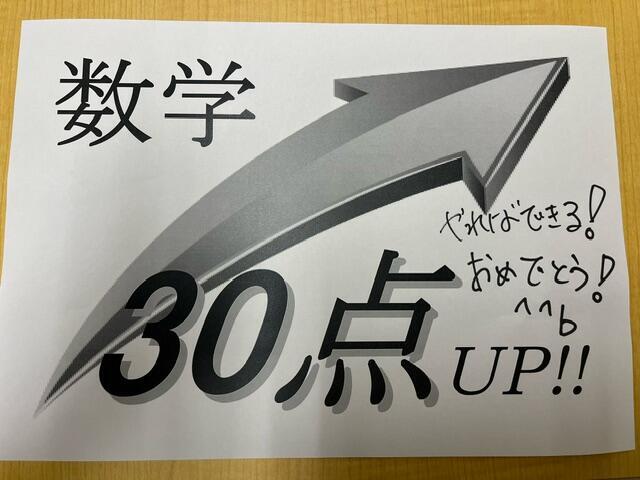 数学
やればできる!
おめでとう!
^^b
30点UP!!